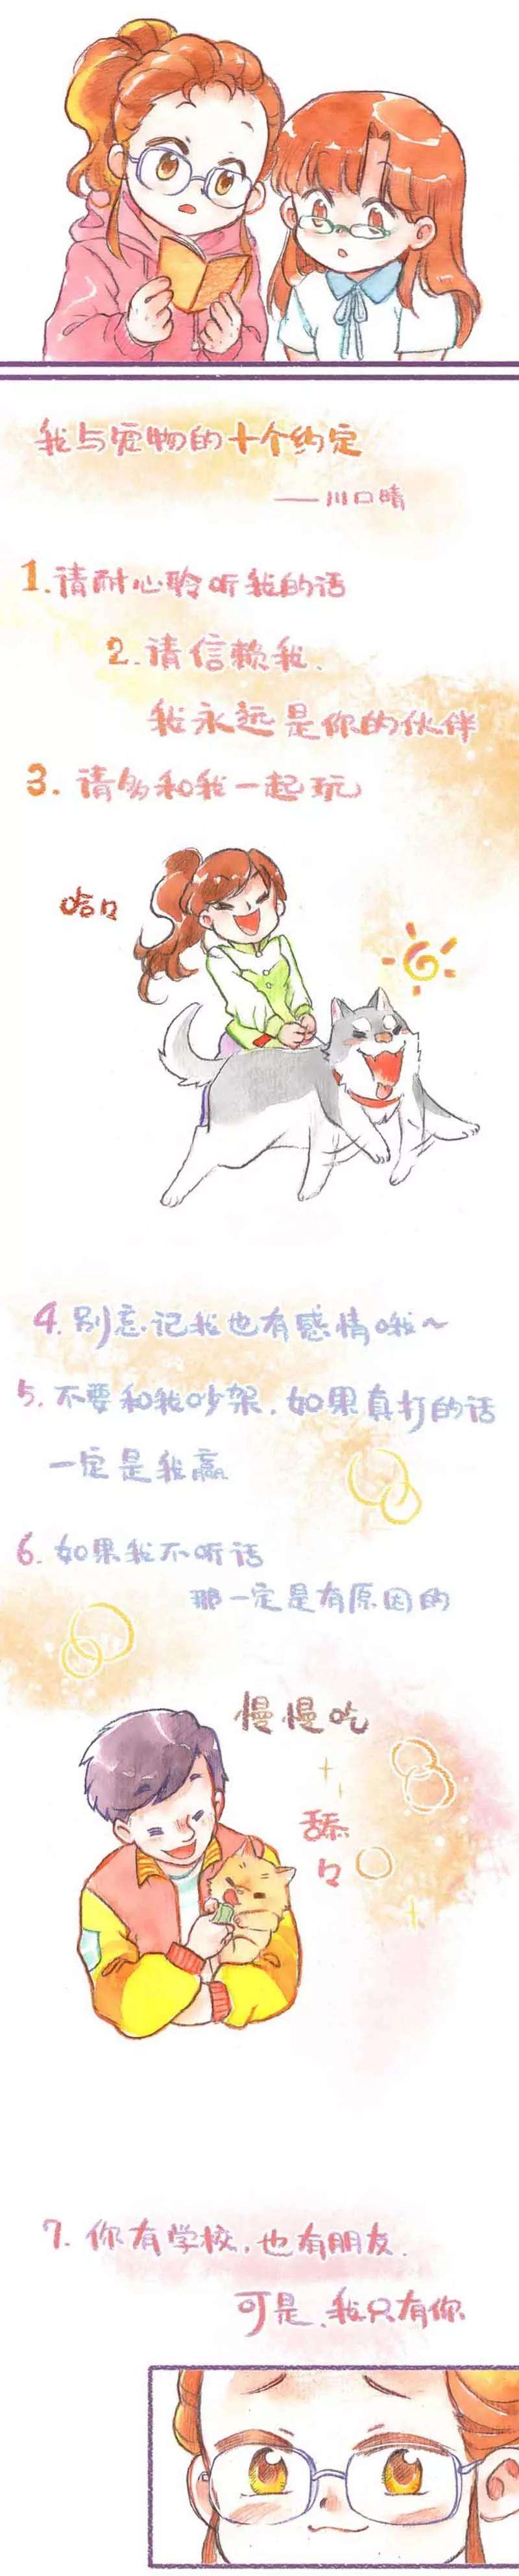 我与宠物的十个约定
——川口晴
1.请耐心聆听我的话
2.请信赖我.
我永远是你的伙伴
3.请多和我一起玩
哈哈
4.别忘记我也有感情哦~
5.不要和我吵架.如果真打的话
一定是我赢
6.如果我不听话
那一定是有原因的
慢慢吃
舔
7.你有学校.也有朋友.
可是.我只有你